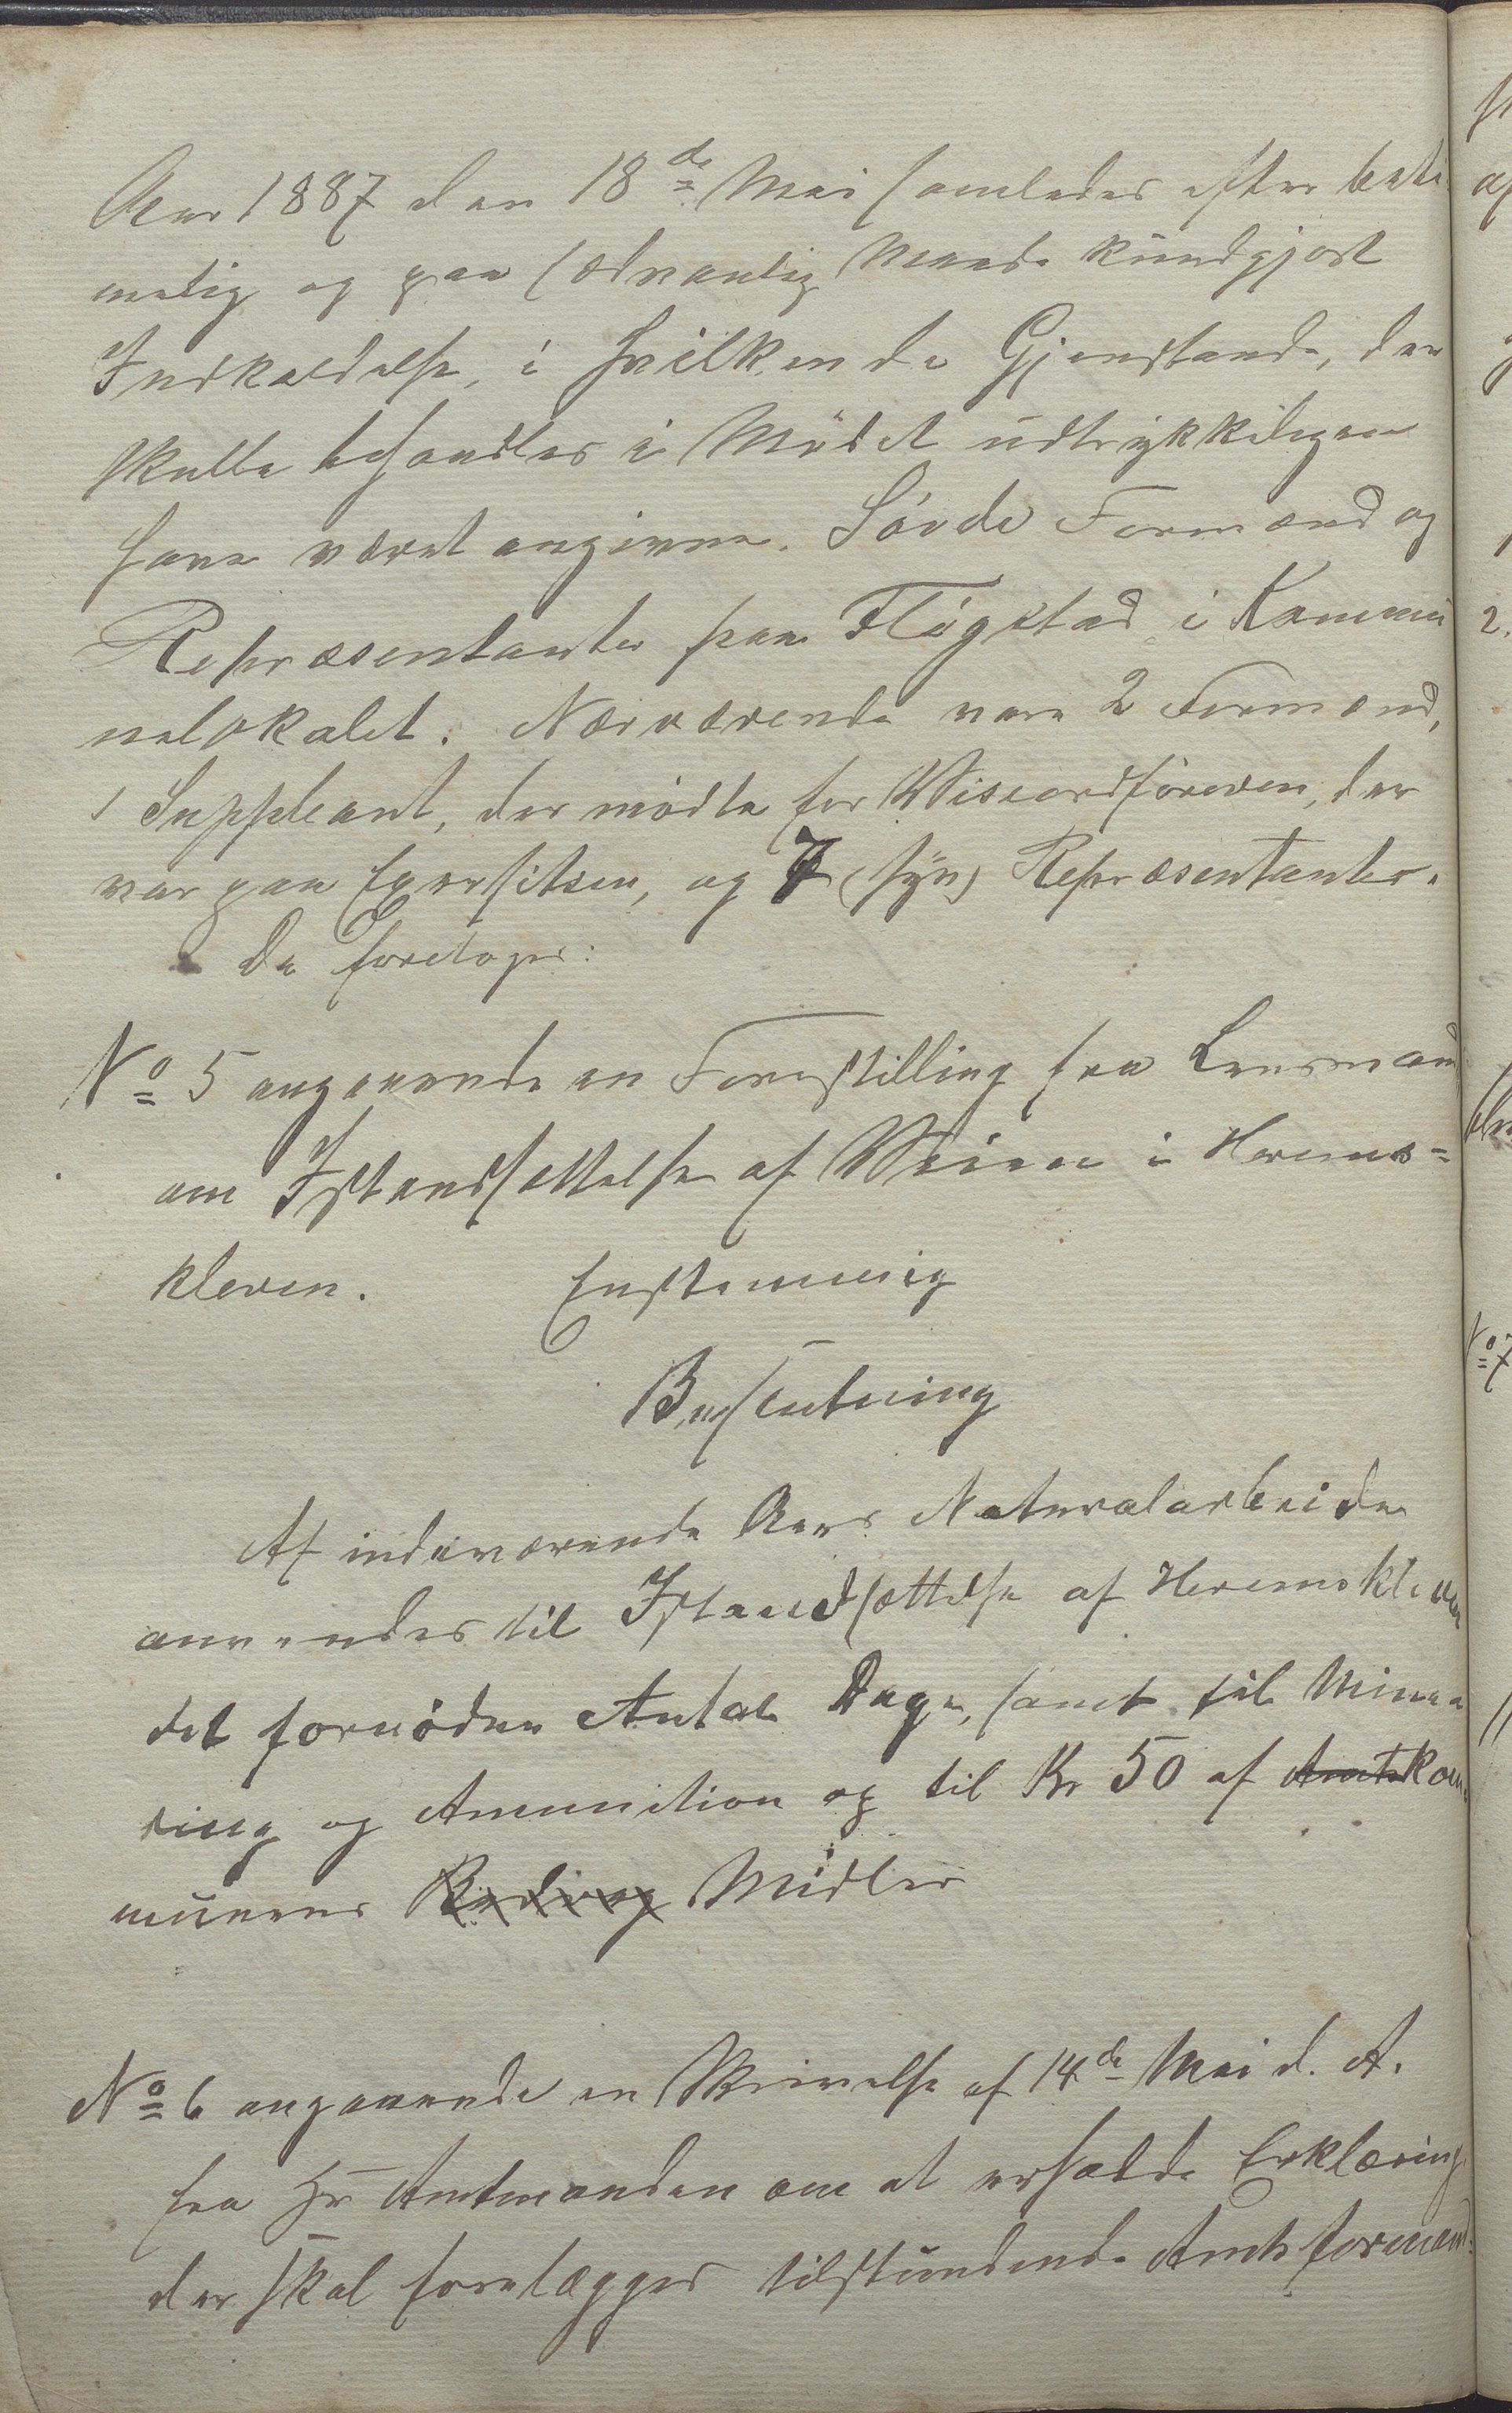 Aar 1887 den 18de Mai samledes efter beti
melig og paa sedvanlig Maade kundgjort
Indkaldelse, i hvilken de Gjenstande, der
skulle behandles i Mödet udtrykkeligen
have været angivne. Sövde Formænd og
Repræsentanter paa Flögstad i Kommu
nelokalet. Nærværende vare 2 Formænd,
1 Suppleant, der mödte for Viseordföreren, der
var paa Exersitsen, og 7 (syv) Repræsentanter.
Da foretoges:
No 5 angaaende en Forestilling fra Lensmand
om Istandsættelse af Veien i Herems-
kleven. Enstemmig
Beslutning
Af indeværende Aars Naturalarbeide
anvendes til Istandsættelse af Heremskleven
det fornödne Antal Dage, samt til Mine
ring og Amunition og til Kr 50 af Amts Kom
munens Midler
No 6 angaaende en Skrivelse af 14de Mai d. A.
fra Hr Amtmanden om at erholde Erklæring
der skal forelægges tilstundende Amtsformand: